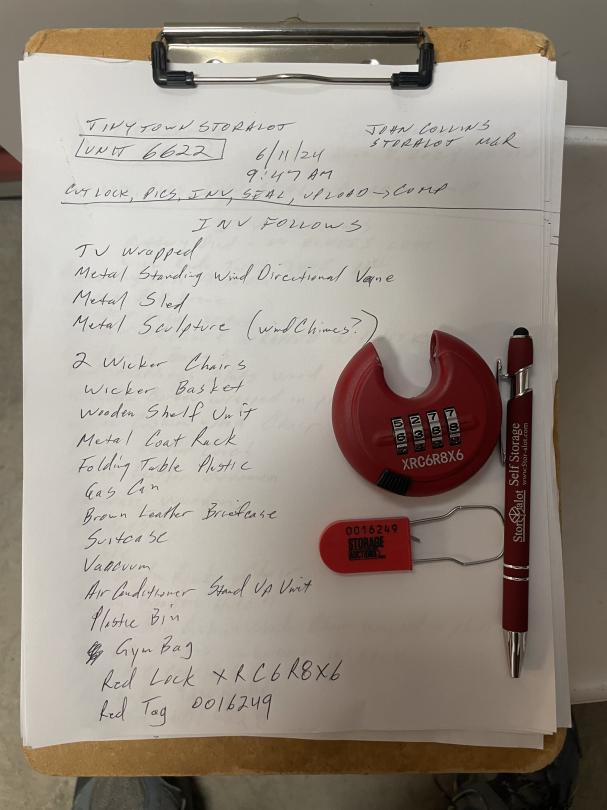 TINYTOWN STORALOT
JOHN COLLINS
STORALOT MGR
UNIT 6622
6/11/24
9:47 AM
CUT LOCK, PICS, INV, SEAL, UPLOAD → COMP
INV FOLLOWS
TV Wrapped
Metal Standing Wind Directional Vane
Metal Sled
Metal Sculpture (wind Chimes?)
2 Wicker Chairs
Wicker Basket
Wooden Shelf Unit
Metal Coat Rack
Folding Table Plastic
Gas Can
Brown Leather Briefcase
Suitcase
Vaccuum
Air Conditioner Stand Up Unit
Plastic Bin
Gym Bag
Red Lock XRC6R8X6
Red Tag 0016249
5277
XRC6R8X6
0016249
STORAGE
AUCTIONS
Storalot Self Storage
www.Stor-alot.com